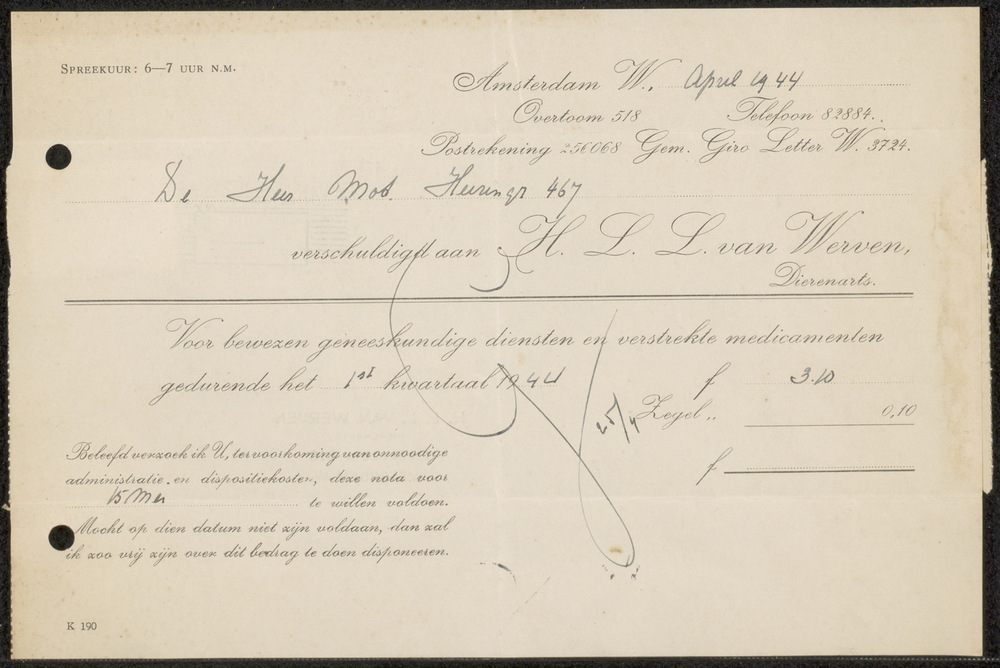 SPREEKUUR: 6—7 UUR N.M.
Amsterdam W., April 1944
Overtoom 518 Telefoon 82884.
Postrekening 256068 Gem. Giro Letter W. 3724.
De Heer Mob. 467
verschuldigd aan H. L. L. van Werven,
Dierenarts.
Voor bewezen geneeskundige diensten en verstrekte medicamenten
gedurende het 1st kwartaal 1944 f 3.10
25/4 Zegel „ 0,10
Beleefd verzoek ik U, ter voorkoming van onnoodige
administratie en dispositiekosten, deze nota voor f
15 Mei te willen voldoen.
Mocht op dien datum niet zijn voldaan, dan zal
ik zoo vrij zijn over dit bedrag te doen disponeeren.
K 190